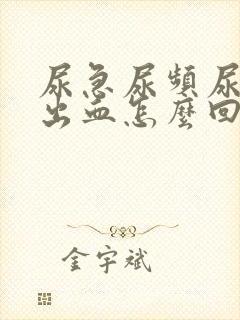 尿急尿頻尿
出血怎麼回
金宇斌